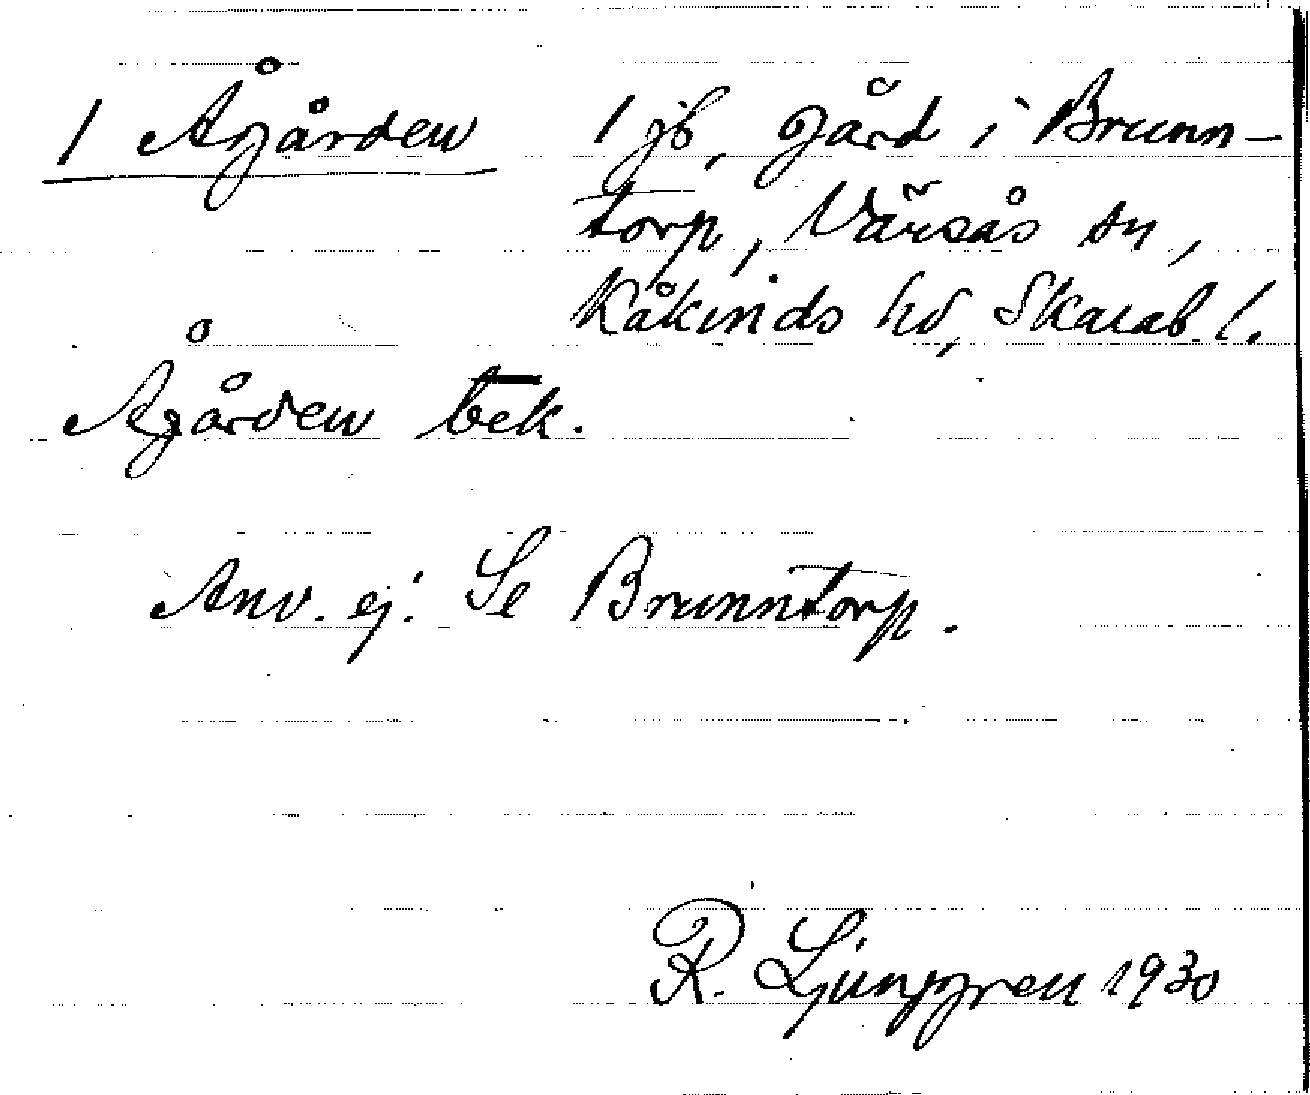 1 Ågården
1 jb, gård i Brunn-
torp, Värsås sn,
Kåkinds hd, Skarab. l.
Ågården bek.
Anv. ej. Se Brunntorp.
R. Ljunggren 1930